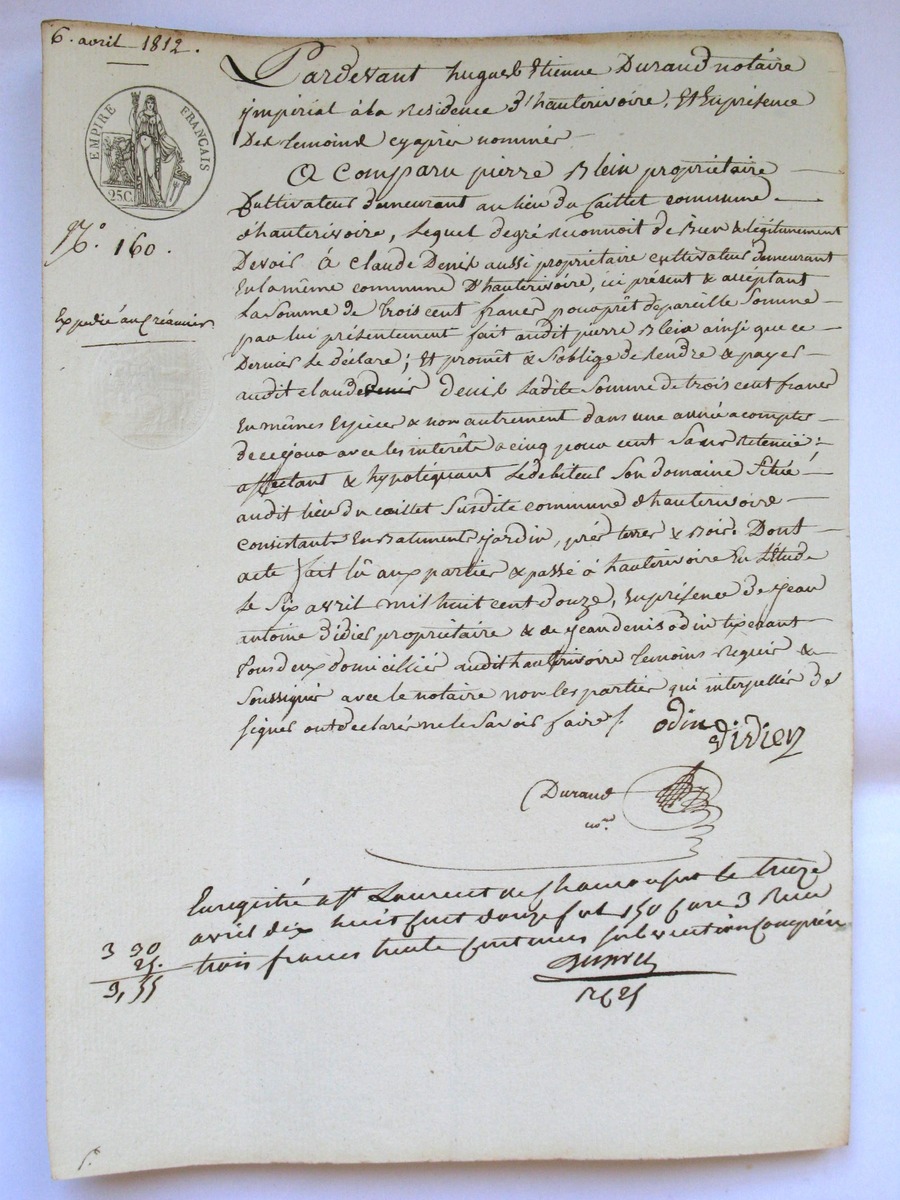 6. avril 1812.
EMPIRE FRANÇAIS
25C.
N.º 160.
Expedié au Créancier
Pardevant hugues Etienne Durand notaire
ymperial à la Residence d'hauterivoire, Et En présence
Des temoins cyaprès nommés
A Comparu pierre Blein propriétaire
Cultivateur demeurant au lieu du Caillet commune
d'hauterivoire, Lequel degré reconnoit de Bien & légitimement
Devoir à Claude Denis aussi propriétaire cultivateur demeurant
En la même commune D'hauterivoire, ici présent & acceptant
La Somme de Trois cent francs pour prêt de pareille Somme
par lui présentement fait audit pierre Blein ainsi que ce
Dernier Le Déclare; Et promêt & S'oblige de Rendre & payer
audit claude denis Ladite Somme de trois cent francs
En mêmes Espèces & non autrement dans une année a compter
de ce jour avec les interêts a cinq pour cent Sans Retenuë;
affectant & hypotéquant Le debiteur Son domaine Situé
audit Lieu du caillet Susdite commune d'hauterivoire
Consistant En Batiments jardin, prés terres & Bois. Dont
acte fait lû aux parties & passé à hauterivoire En l'Etude
Le Six avril mil huit cent douze, En présence de jean
antoine didier propriétaire & de jean denis odin tixerant
Tous deux domiciliés audit hauterivoire temoins Requis &
Soussignés avec le notaire non les parties qui interpellés de
Signer ont declaré ne le Savoir faire /.
odin
didier
Durand
no.re
Enregistré a St Laurent de Chamousset le treize
avril dix huit cent douze fol 150 Case 3 Recu
trois francs trente centimes subvention Comprise
3 30
25.
3,55